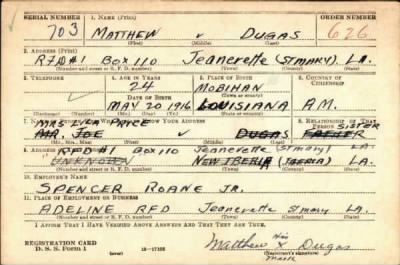 SERIAL NUMBER 1. NAME (Print) ORDER NUMBER
703 MATTHEW v DUGAS 626
(First) (Middle) (Last)
2. ADDRESS (Print)
RFD#1 BOX 110 Jeanerette (ST MARY) LA.
(Number and street or R. F. D. number) (Town) (County) (State)
3. TELEPHONE 4. AGE IN YEARS 5. PLACE OF BIRTH 6. COUNTRY OF CITIZENSHIP
24 MOBIHAN
DATE OF BIRTH (Town or county)
MAY 20 1916 LOUISIANA A.M.
(Mo.) (Day) (Yr.) (State or country)
MRS EVLA PRICE SISTER
MR. JOE v DUGAS FATHER
(Mr., Mrs., Miss) (First) (Middle) (Last)
RFD #1 BOX 110 Jeanerette (ST MARY) LA.
UNKNOWN NEW IBERIA (IBERIA) LA.
(Number and street or R. F. D. number) (Town) (County) (State)
10. EMPLOYER'S NAME
SPENCER ROANE JR.
11. PLACE OF EMPLOYMENT OR BUSINESS
ADELINE RFD Jeanerette St mary LA.
(Number and street or R. F. D. number) (Town) (County) (State)
I AFFIRM THAT I HAVE VERIFIED ABOVE ANSWERS AND THAT THEY ARE TRUE.
His
REGISTRATION CARD Matthew X Dugas
D. S. S. Form 1 (over) 16-17105 mark